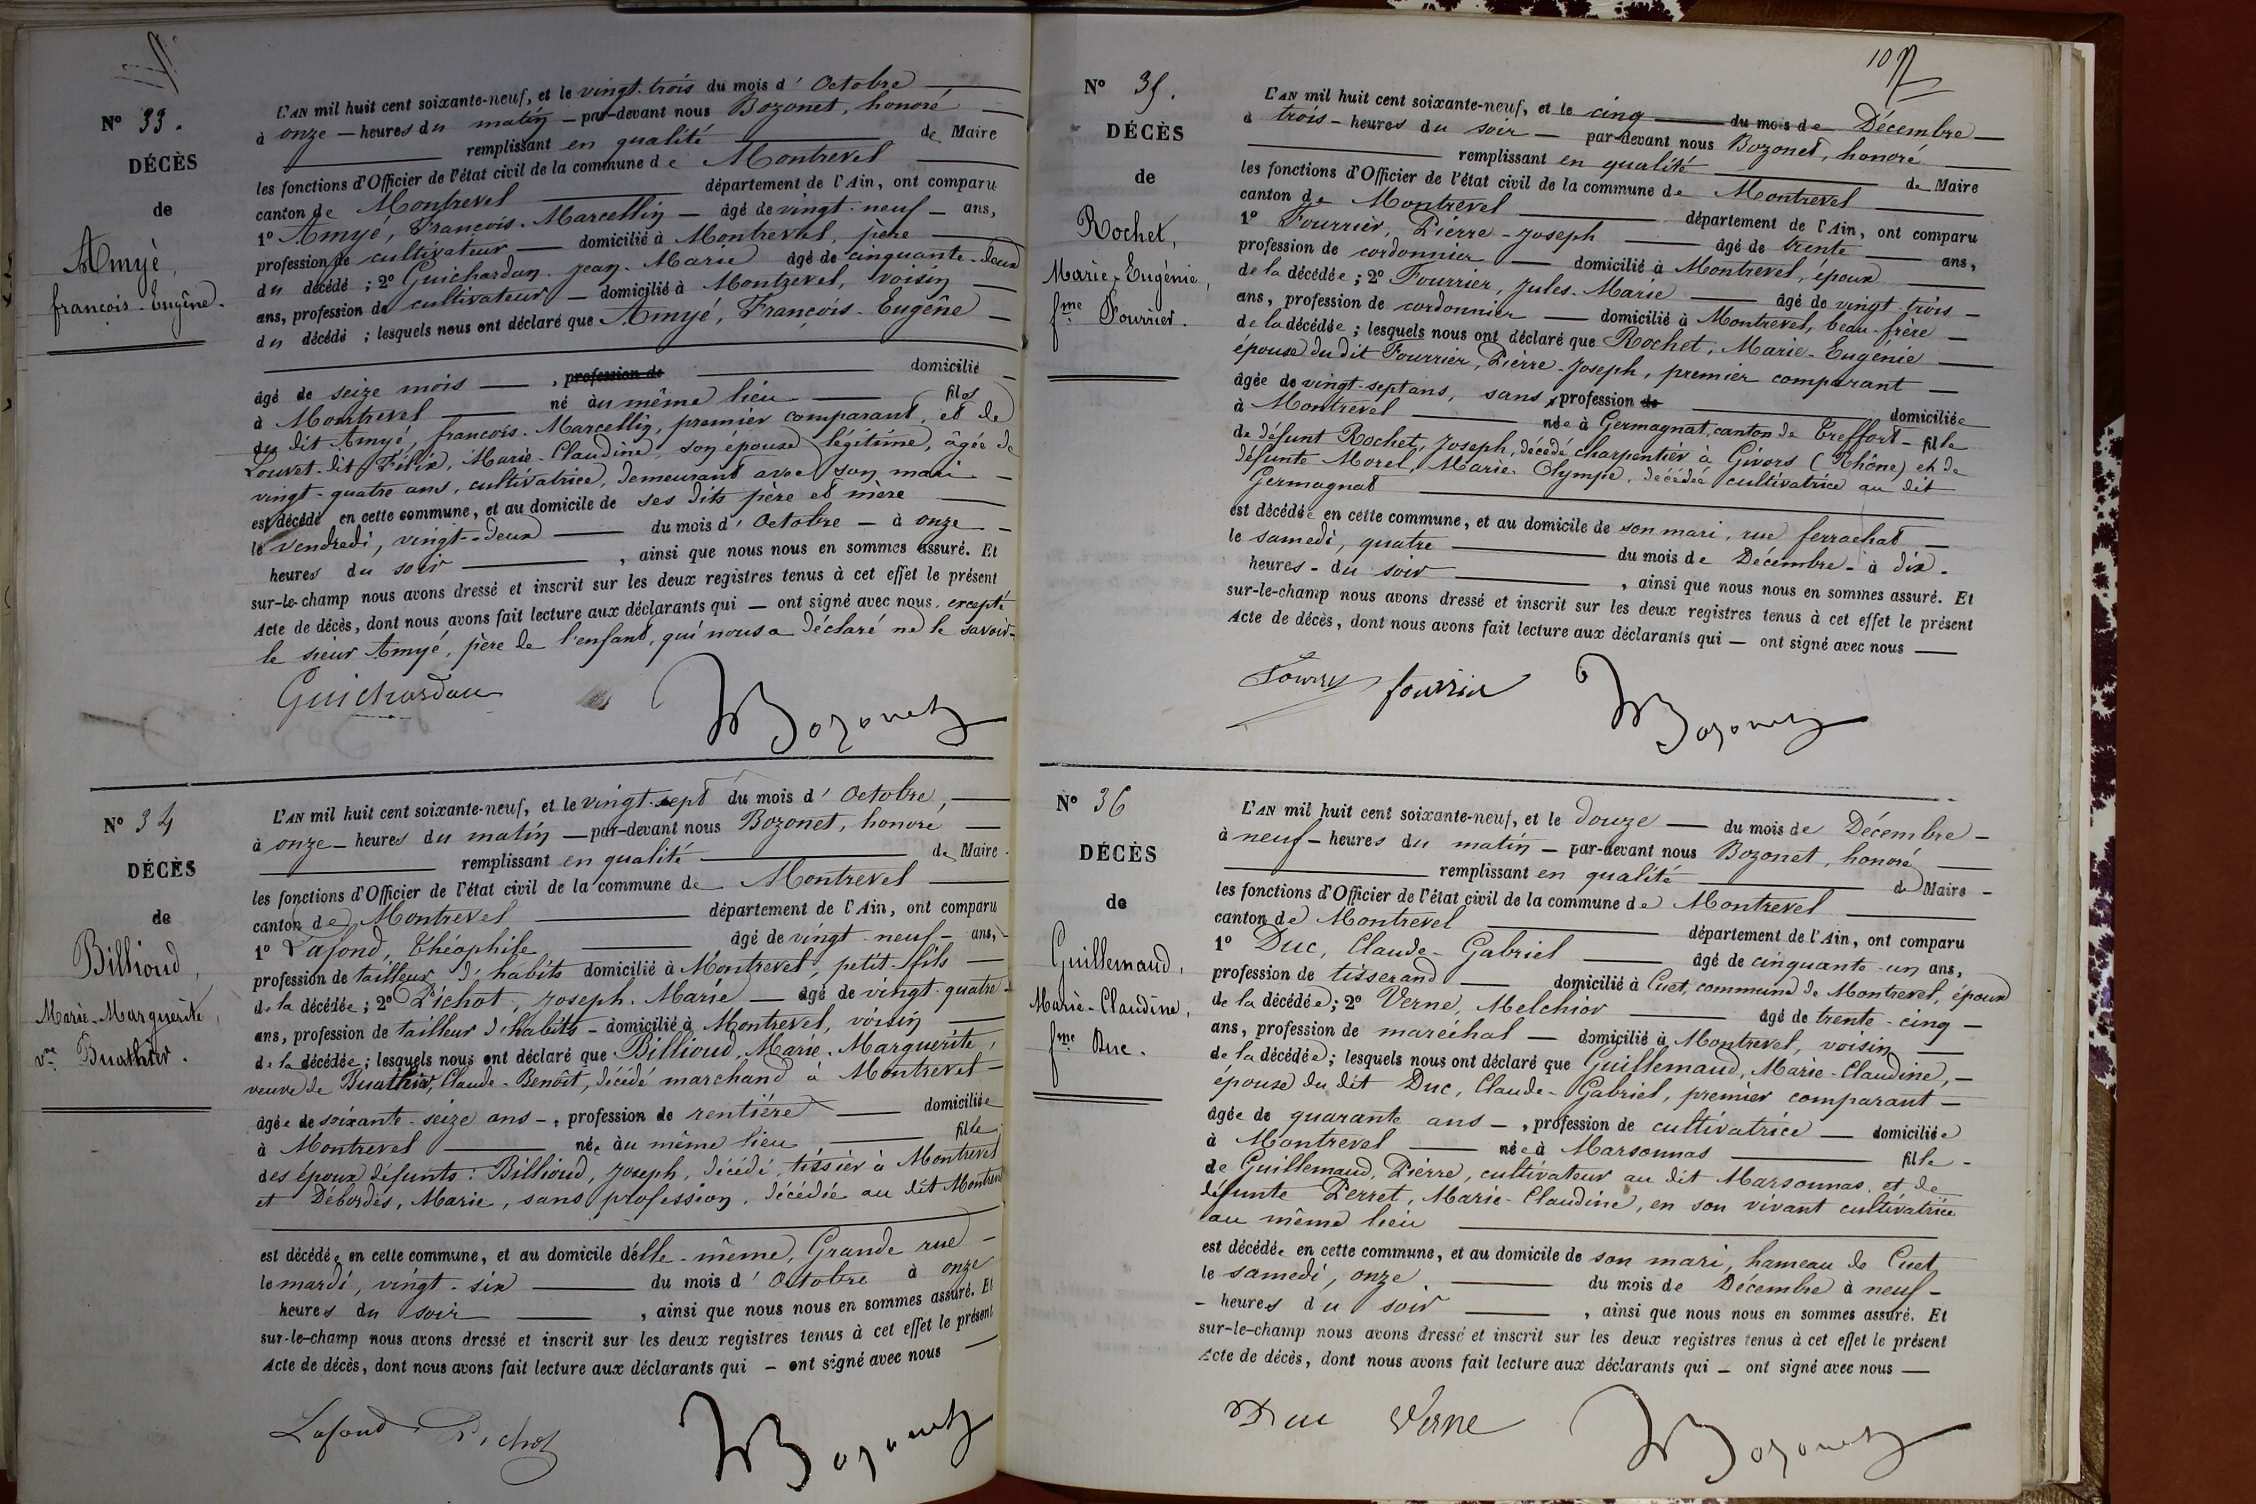 N° 33.
DÉCÈS
de
Amyé,
françois-Eugène.
L'AN mil huit cent soixante-neuf, et le vingt-trois du mois d'Octobre
à onze heures du matin par-devant nous Bozonet, honoré
remplissant en qualité de Maire
les fonctions d'Officier de l'état civil de la commune de Montrevel
canton de Montrevel département de l'Ain, ont comparu
1° Amyé, François-Marcellin âgé de vingt-neuf ans,
profession de cultivateur domicilié à Montrevel, père
du décédé ; 2° Guichardan Jean-Marie âgé de cinquante-deux
ans, profession de cultivateur domicilié à Montrevel, voisin
du décédé ; lesquels nous ont déclaré que Amyé, François-Eugène
âgé de seize mois, profession de domicilié
à Montrevel né au même lieu fils
du dit Amyé, françois-Marcellin, premier comparant, et de
Louvet-dit Félix, Marie-Claudine, son épouse légitime, âgée de
vingt-quatre ans, cultivatrice, demeurant avec son mari
est décédé en cette commune, et au domicile de ses dits père et mère
le vendredi, vingt-deux du mois d'Octobre à onze
heures du soir, ainsi que nous nous en sommes assuré. Et
sur-le-champ nous avons dressé et inscrit sur les deux registres tenus à cet effet le présent
Acte de décès, dont nous avons fait lecture aux déclarants qui ont signé avec nous, excepté
le sieur Amyé, père de l'enfant, qui nous a déclaré ne le savoir
Guichardan
Bozonet
N° 34
DÉCÈS
de
Billioud,
Marie-Marguerite,
vve Buathier.
L'AN mil huit cent soixante-neuf, et le vingt-sept du mois d'Octobre,
à onze heures du matin par-devant nous Bozonet, honoré
remplissant en qualité de Maire
les fonctions d'Officier de l'état civil de la commune de Montrevel
canton de Montrevel département de l'Ain, ont comparu
1° Lafond, Théophile âgé de vingt-neuf ans,
profession de tailleur d'habits domicilié à Montrevel, petit-fils
de la décédée ; 2° Pichot, Joseph-Marie âgé de vingt-quatre
ans, profession de tailleur d'habits domicilié à Montrevel, voisin
de la décédée ; lesquels nous ont déclaré que Billioud, Marie-Marguerite,
veuve de Buathier, Claude-Benoît, décédé marchand à Montrevel
âgée de soixante-seize ans, profession de rentière domiciliée
à Montrevel née au même lieu fille
des époux défunts : Billioud, Joseph, décédé tissier à Montrevel
et Débordes, Marie, sans profession, décédée au dit Montrevel
est décédée en cette commune, et au domicile d'elle-même, Grande rue
le mardi, vingt-six du mois d'Octobre à onze
heures du soir, ainsi que nous nous en sommes assuré. Et
sur-le-champ nous avons dressé et inscrit sur les deux registres tenus à cet effet le présent
Acte de décès, dont nous avons fait lecture aux déclarants qui ont signé avec nous
Lafond Pichot
Bozonet
N° 35.
DÉCÈS
de
Rochet,
Marie-Eugénie,
fme Fourrier.
L'AN mil huit cent soixante-neuf, et le cinq du mois de Décembre
à trois heures du soir par-devant nous Bozonet, honoré
remplissant en qualité de Maire
les fonctions d'Officier de l'état civil de la commune de Montrevel
canton de Montrevel département de l'Ain, ont comparu
1° Fourrier, Pierre-Joseph âgé de trente ans,
profession de cordonnier domicilié à Montrevel, époux
de la décédée ; 2° Fourrier, Jules-Marie âgé de vingt-trois
ans, profession de cordonnier domicilié à Montrevel, beau-frère
de la décédée ; lesquels nous ont déclaré que Rochet, Marie-Eugénie
épouse du dit Fourrier, Pierre-Joseph, premier comparant
âgée de vingt-sept ans, sans profession de domiciliée
à Montrevel née à Germagnat, canton de Treffort fille
de défunt Rochet, Joseph, décédé charpentier à Givors (Rhône) et de
défunte Morel, Marie-Olympe, décédée cultivatrice au dit
Germagnat
est décédée en cette commune, et au domicile de son mari, rue ferrachat
le samedi, quatre du mois de Décembre à dix
heures du soir, ainsi que nous nous en sommes assuré. Et
sur-le-champ nous avons dressé et inscrit sur les deux registres tenus à cet effet le présent
Acte de décès, dont nous avons fait lecture aux déclarants qui ont signé avec nous
fourrier
Bozonet
N° 36
DÉCÈS
de
Guillemaud,
Marie-Claudine,
fme Duc.
L'AN mil huit cent soixante-neuf, et le douze du mois de Décembre
à neuf heures du matin par-devant nous Bozonet, honoré
remplissant en qualité de Maire
les fonctions d'Officier de l'état civil de la commune de Montrevel
canton de Montrevel département de l'Ain, ont comparu
1° Duc, Claude-Gabriel âgé de cinquante-un ans,
profession de tisserand domicilié à Cuet, commune de Montrevel, époux
de la décédée ; 2° Verne, Melchior âgé de trente-cinq
ans, profession de maréchal domicilié à Montrevel, voisin
de la décédée ; lesquels nous ont déclaré que Guillemaud, Marie-Claudine,
épouse du dit Duc, Claude-Gabriel, premier comparant
âgée de quarante ans, profession de cultivatrice domiciliée
à Montrevel née à Marsonnas fille
de Guillemaud, Pierre, cultivateur au dit Marsonnas, et de
défunte Perret, Marie-Claudine, en son vivant cultivatrice
au même lieu
est décédée en cette commune, et au domicile de son mari, hameau de Cuet
le samedi, onze du mois de Décembre à neuf
heures du soir, ainsi que nous nous en sommes assuré. Et
sur-le-champ nous avons dressé et inscrit sur les deux registres tenus à cet effet le présent
Acte de décès, dont nous avons fait lecture aux déclarants qui ont signé avec nous
Duc Verne
Bozonet